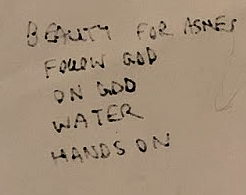 BEAUTY FOR ASHES
FOLLOW GOD
ON GOD
WATER
HANDS ON